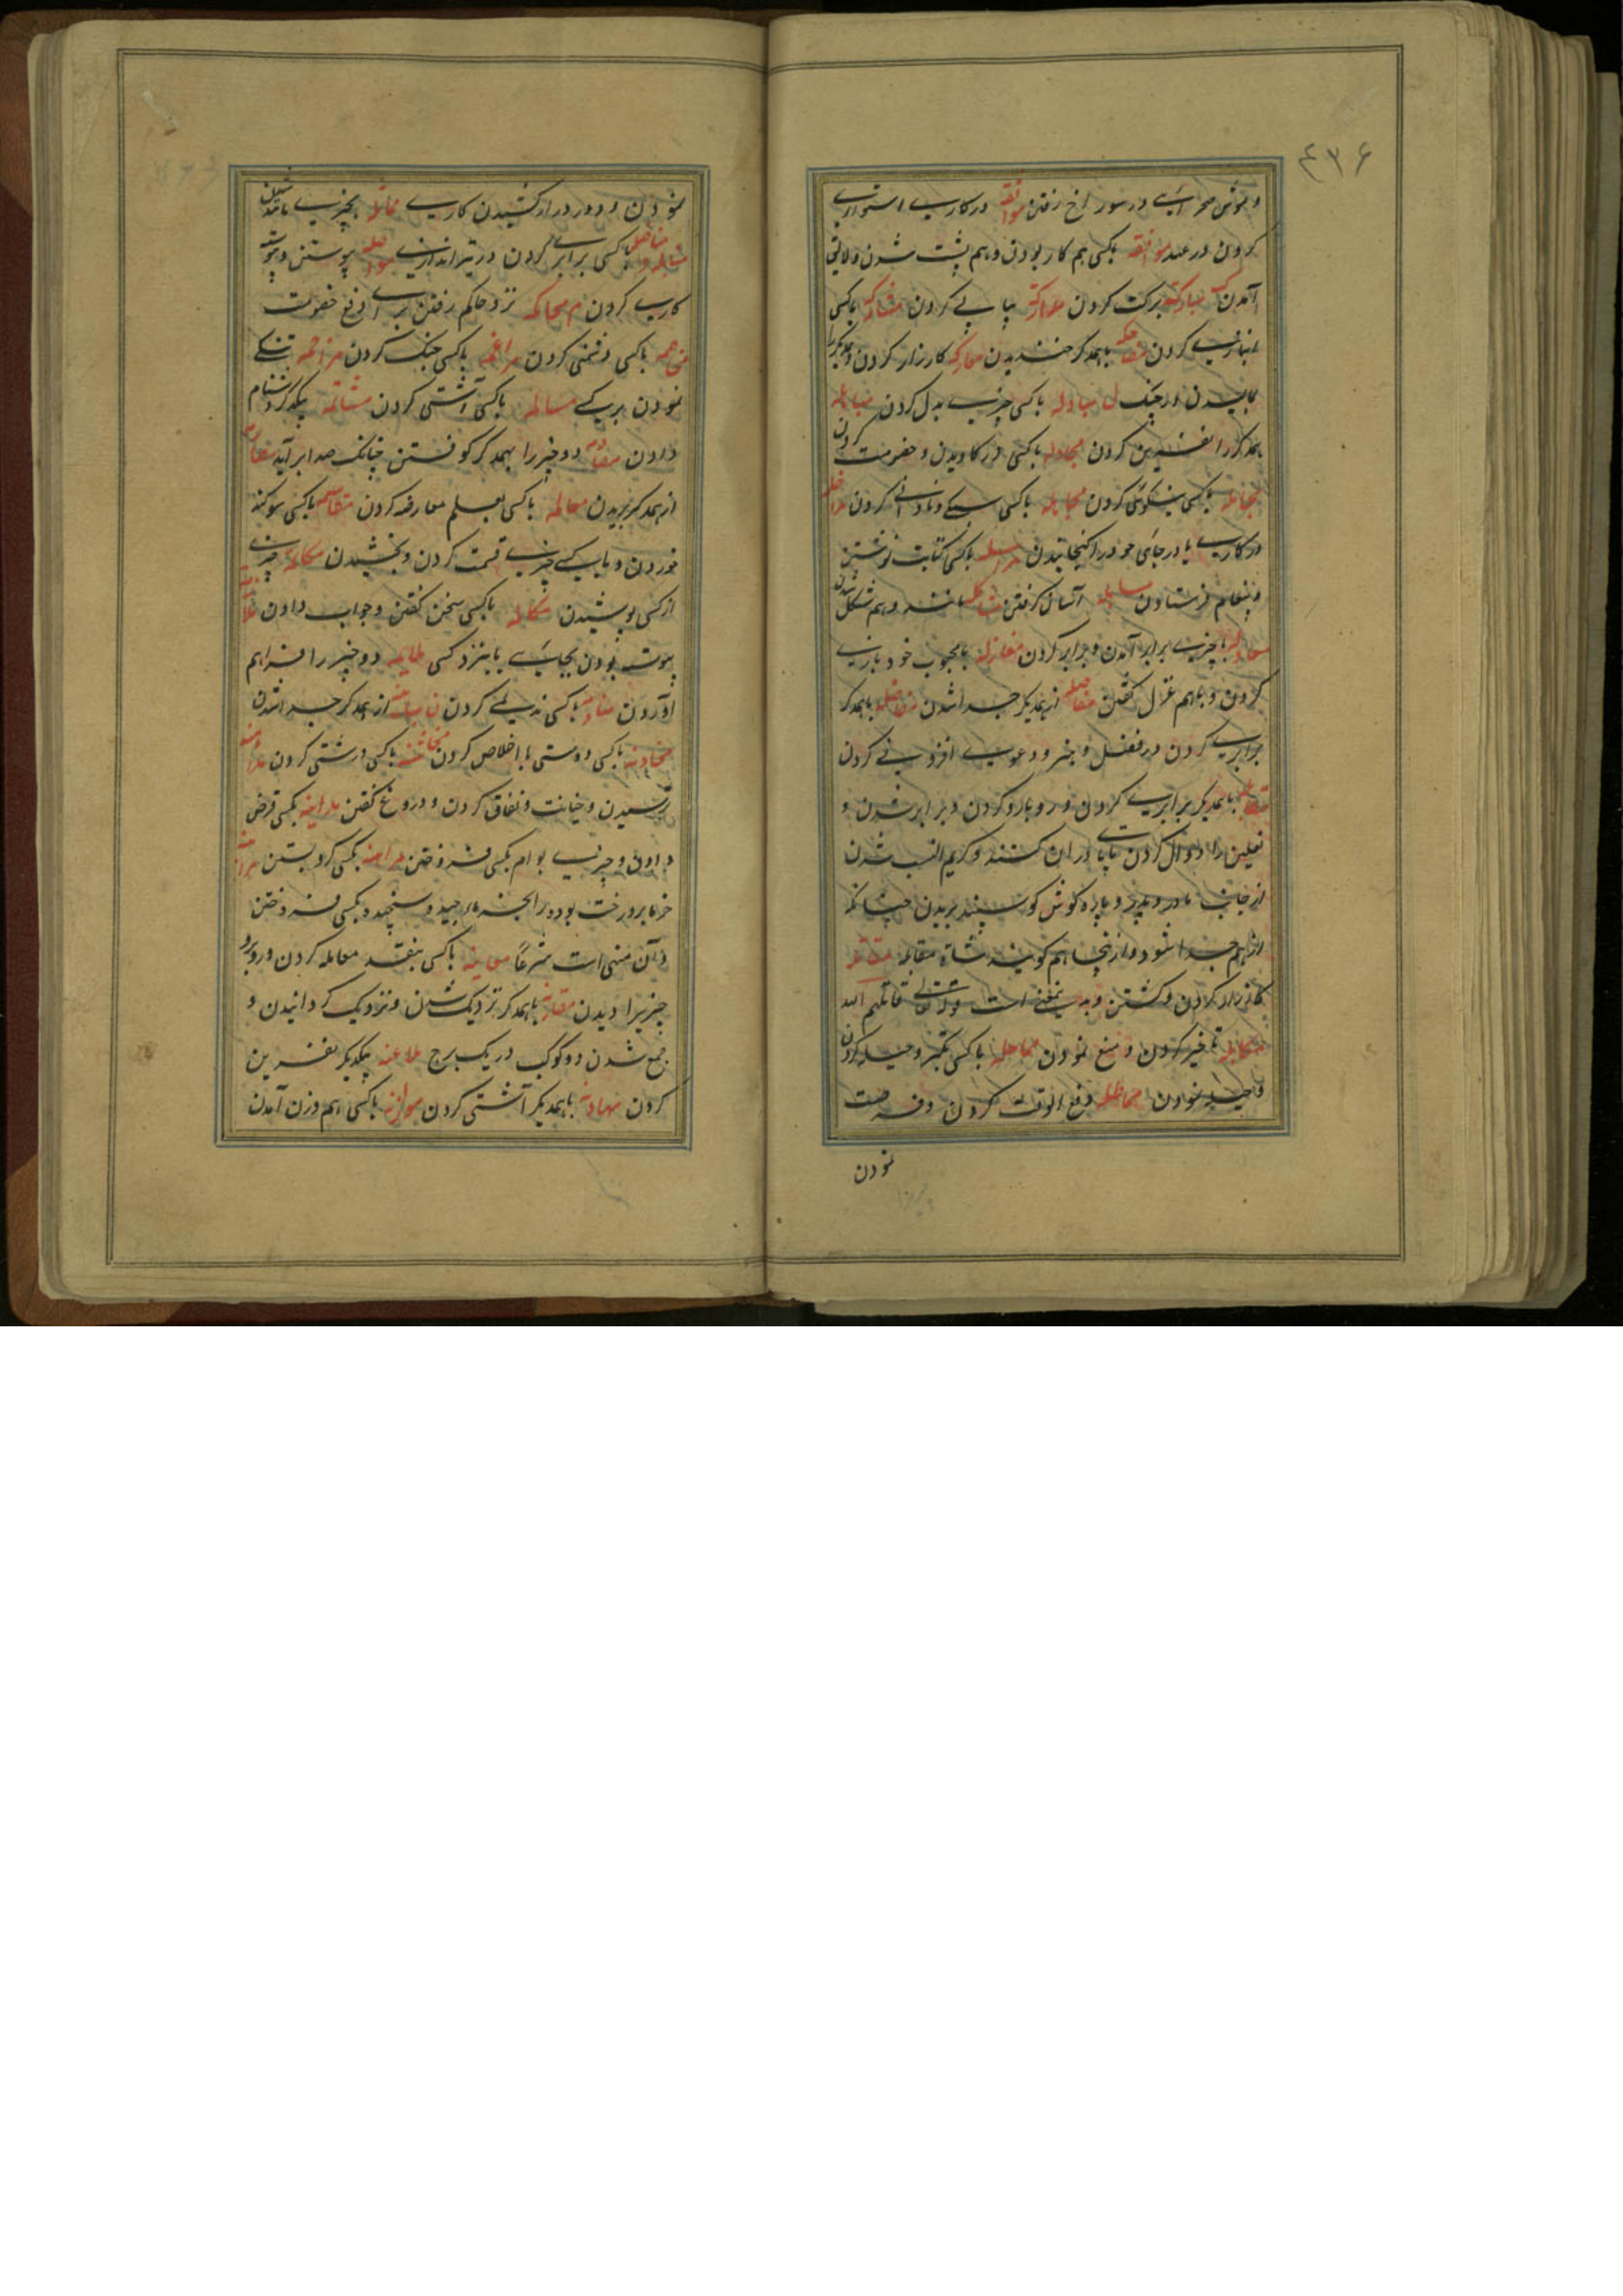 ۴۳۶
و موش صحرایی در سوراخ رفتن موا ثقه در کاری استواری
کردن در عهد موافقه باکسی هم کار بودن و هم پشت شدن و لایق
آمدن ک مبارکه برکت کردن مدارکه پیاپی کردن مشارکه باکسی
انبازی کردن مضاحکه باهمدگر خندیدن معارکه کارزار کردن و همدیگر را
مالیدن در جنگ ل مبادله باکسی چیزی بدل کردن مباهله
همدگر را نفرین کردن مجادله باکسی در کاویدن و خصومت کردن
مجامله باکسی نیکوئی کردن مجاهله باکسی سبکی و نادانی کردن مداخله
در کاری یا در جای خود را گنجانیدن مراسله باکسی کتابت نوشتن
و پیغام فرستادن مساهله آسان گرفتن مشاکله مانند و هم شکل شدن
معادله باچیزی برابر آمدن و برابر کردن مغازله بامحبوب خود بازی
کردن و باهم غزل گفتن مفاصله از همدیگر جدا شدن مفاضله باهمدگر
برابری کردن در فضل و هنر و دعوی افزونی کردن
مقابله باهمدیگر برابری کردن و روبارو کردن و برابر شدن و
نعلین را دوال کردن تا پا در ان کنند و کریم النسب شدن
از جانب مادر و پدر و پاره گوش گوسپند بریدن چنانکه
از هم جدا نشود و از اینجا هم گویند شاة مقابله مقاتله
کارزار کردن و کشتن وبه یمعنی است قوله تعالی قاتلهم الله
تاخیر کردن و منع نمودن مماحله باکسی بمکر و حیله کردن
و حیله نمودن مماطله دفع الوقت کردن و فرصت
نمودن
نمودن و دور دراز کشیدن کاری مماثله بچیزی مانند شدن
مناضله باکسی برابری کردن در تیراندازی مواصله پیوستن و پیوسته
کاری کردن م محاکمه نزد حاکم رفتن برای دفع خصومت
باکسی دشمنی کردن مراغمه باکسی جنگ کردن مزاحمه تنگی
نمودن بر یکی مسالمه باکسی آشتی کردن مشاتمه یکدگر دشنام
دادن مصادمه دو چیز را بهمدگر کوفتن چنانک صدا برآید مصارمه
از همدگر بریدن معالمه باکسی بعلم معارضه کردن مقاسمه باکسی سوگند
خوردن و بایکی چیزی قسمت کردن و بخشیدن مکاتمه چیزی
از کسی پوشیدن مکالمه باکسی سخن گفتن و جواب دادن ملازمه
پیوسته بودن بجایی یا بنزد کسی ملایمه دو چیز را فراهم
آوردن منادمه باکسی ندیمی کردن ن مباینه از همدگر جدا شدن
مخادنه باکسی دوستی با اخلاص کردن مخاشنه باکسی درشتی کردن مداهنه
ترسیدن و خیانت و نفاق کردن و دروغ گفتن مداینه بکسی قرض
دادن و چیزی بوام بکسی فروختن مراهنه بکسی گرو بستن مزابنه
خرما بر درخت بود در انچه ماه چیده و سنجیده بکسی فروختن
و آن منهی است شرعاً معاینه باکسی بنقد معامله کردن و روبرو
چیزیرا دیدن مقارنه باهمدگر نزدیک شدن و نزدیک گردانیدن و
جمع شدن دو کوکب در یک برج ملاعنه یکدیگر نفرین
کردن مهادنه باهمدیگر آشتی کردن موازنه باکسی هم وزن آمدن